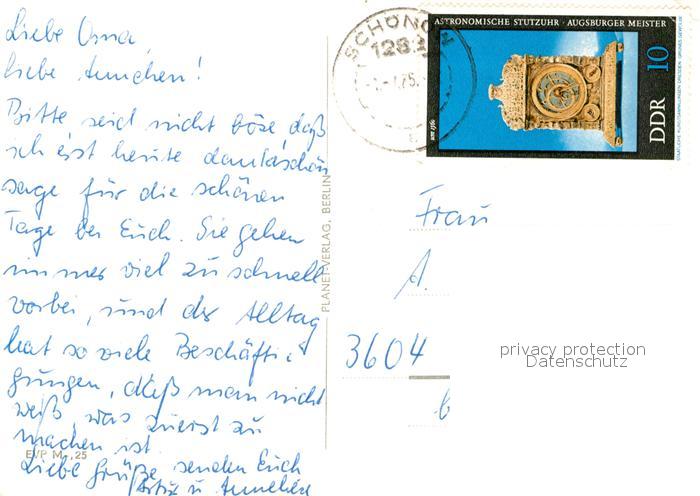 Liebe Oma,
liebe Annchen!
Bitte seid nicht böse daß
ich erst heute dankeschön
sage für die schönen
Tage bei Euch. Sie gehen
immer viel zu schnell
vorbei, und der Alltag
hat so viele Beschäfti
gungen, daß man nicht
weiß, was zuerst zu
machen ist.
EVP M ,25
Liebe Grüße senden Euch
u. Annelies
PLANET-VERLAG, BERLIN
SCHÖNOW
1281
ASTRONOMISCHE STUTZUHR · AUGSBURGER MEISTER
um 1560
DDR 10
STAATLICHE KUNSTSAMMLUNGEN DRESDEN
Frau
A.
3604
privacy protection
Datenschutz